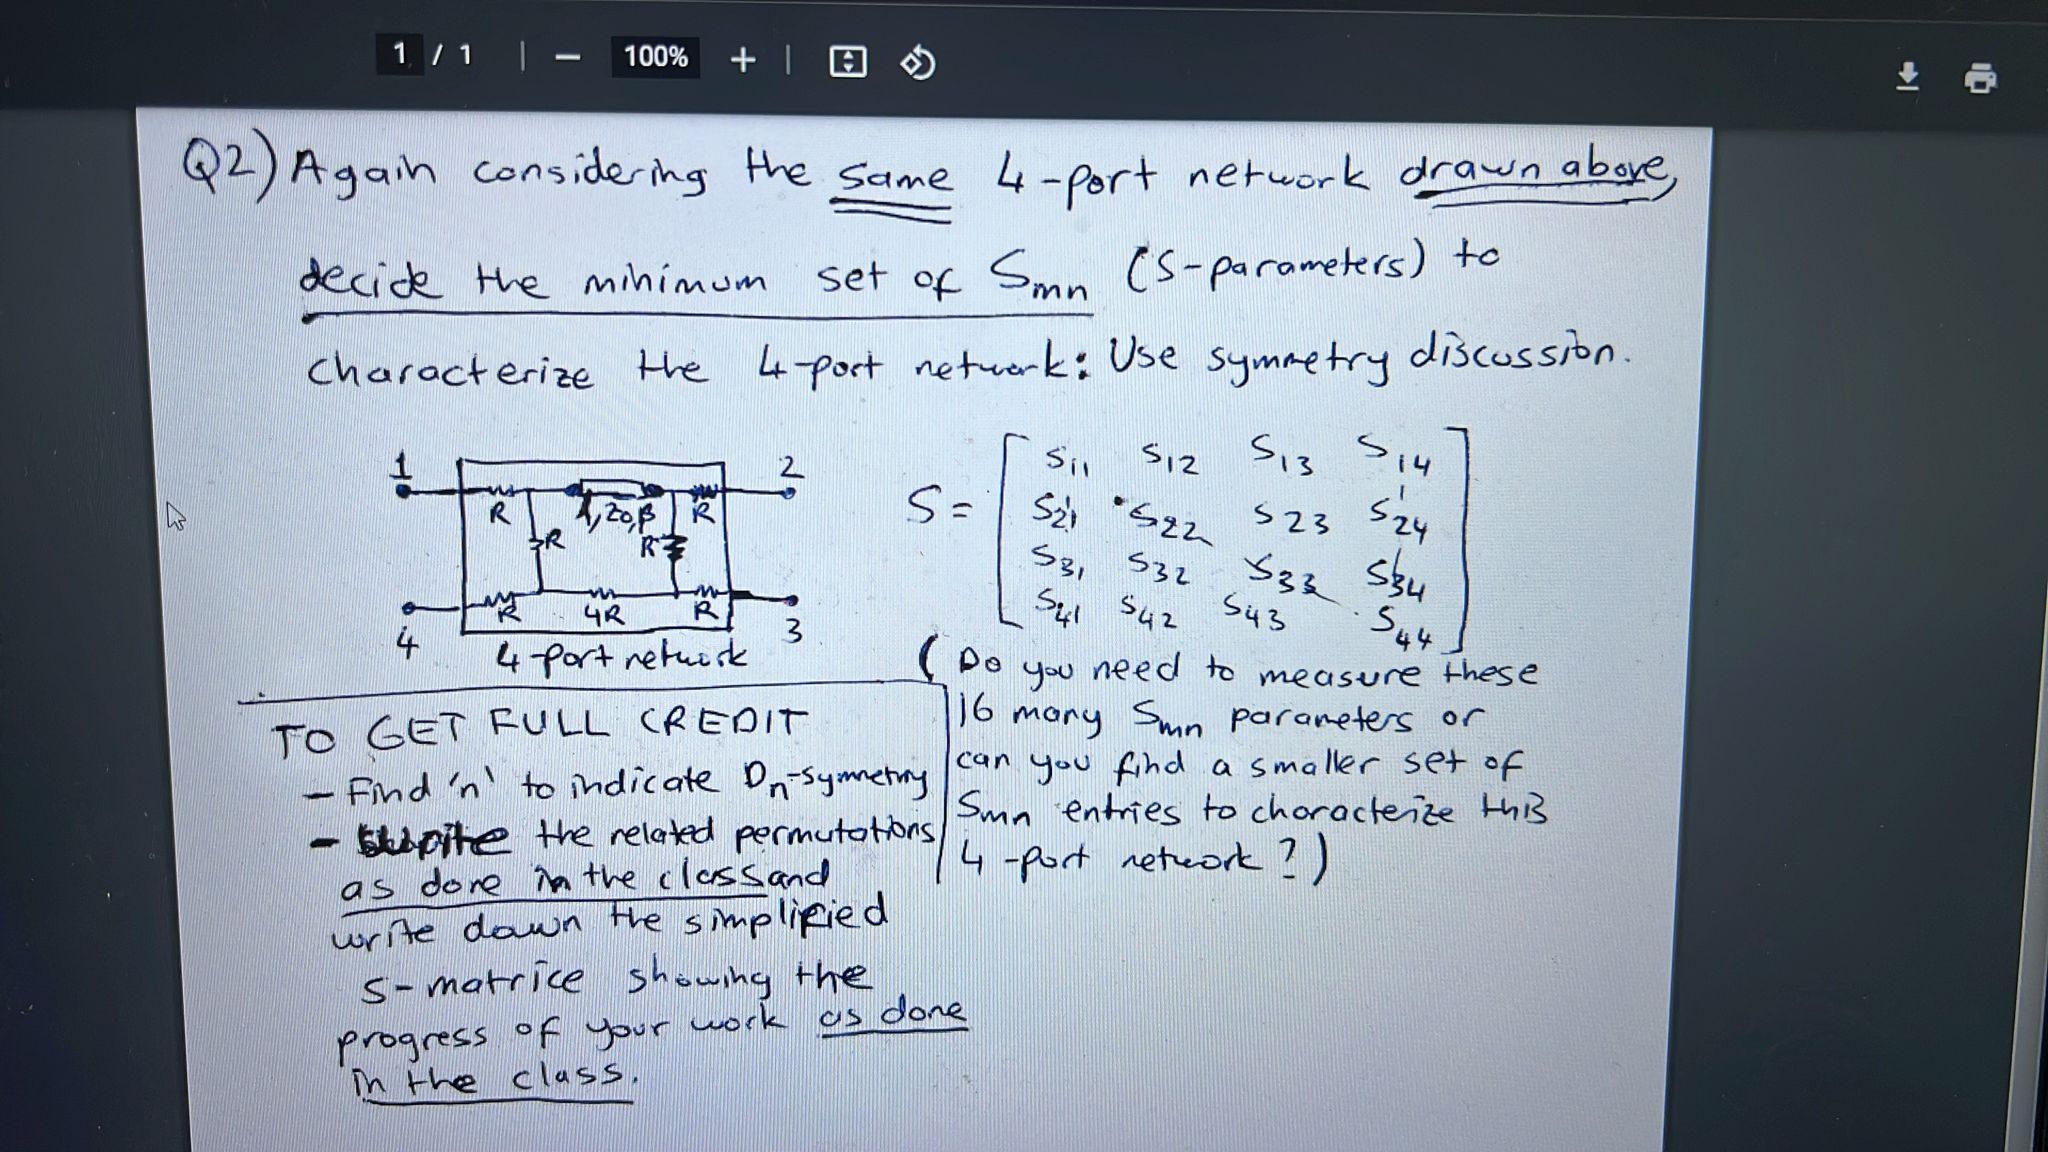 1 / 1 | − 100% + |
Q2) Again considering the same 4-port network drawn above,
decide the minimum set of Smn (S-parameters) to
characterize the 4-port network: Use symmetry discussion.
1
2
R
λ, Z0, β
R
R
R
R
4R
R
4
3
4-port network
S =
S11 S12 S13 S14
S21 S22 S23 S24
S31 S32 S33 S34
S41 S42 S43 S44
(Do you need to measure these
16 many Smn parameters or
can you find a smaller set of
Smn entries to characterize this
4-port network?)
TO GET FULL CREDIT
- Find 'n' to indicate Dn-symmetry
- the related permutations
as done in the class and
write down the simplified
S-matrice showing the
progress of your work as done
in the class.